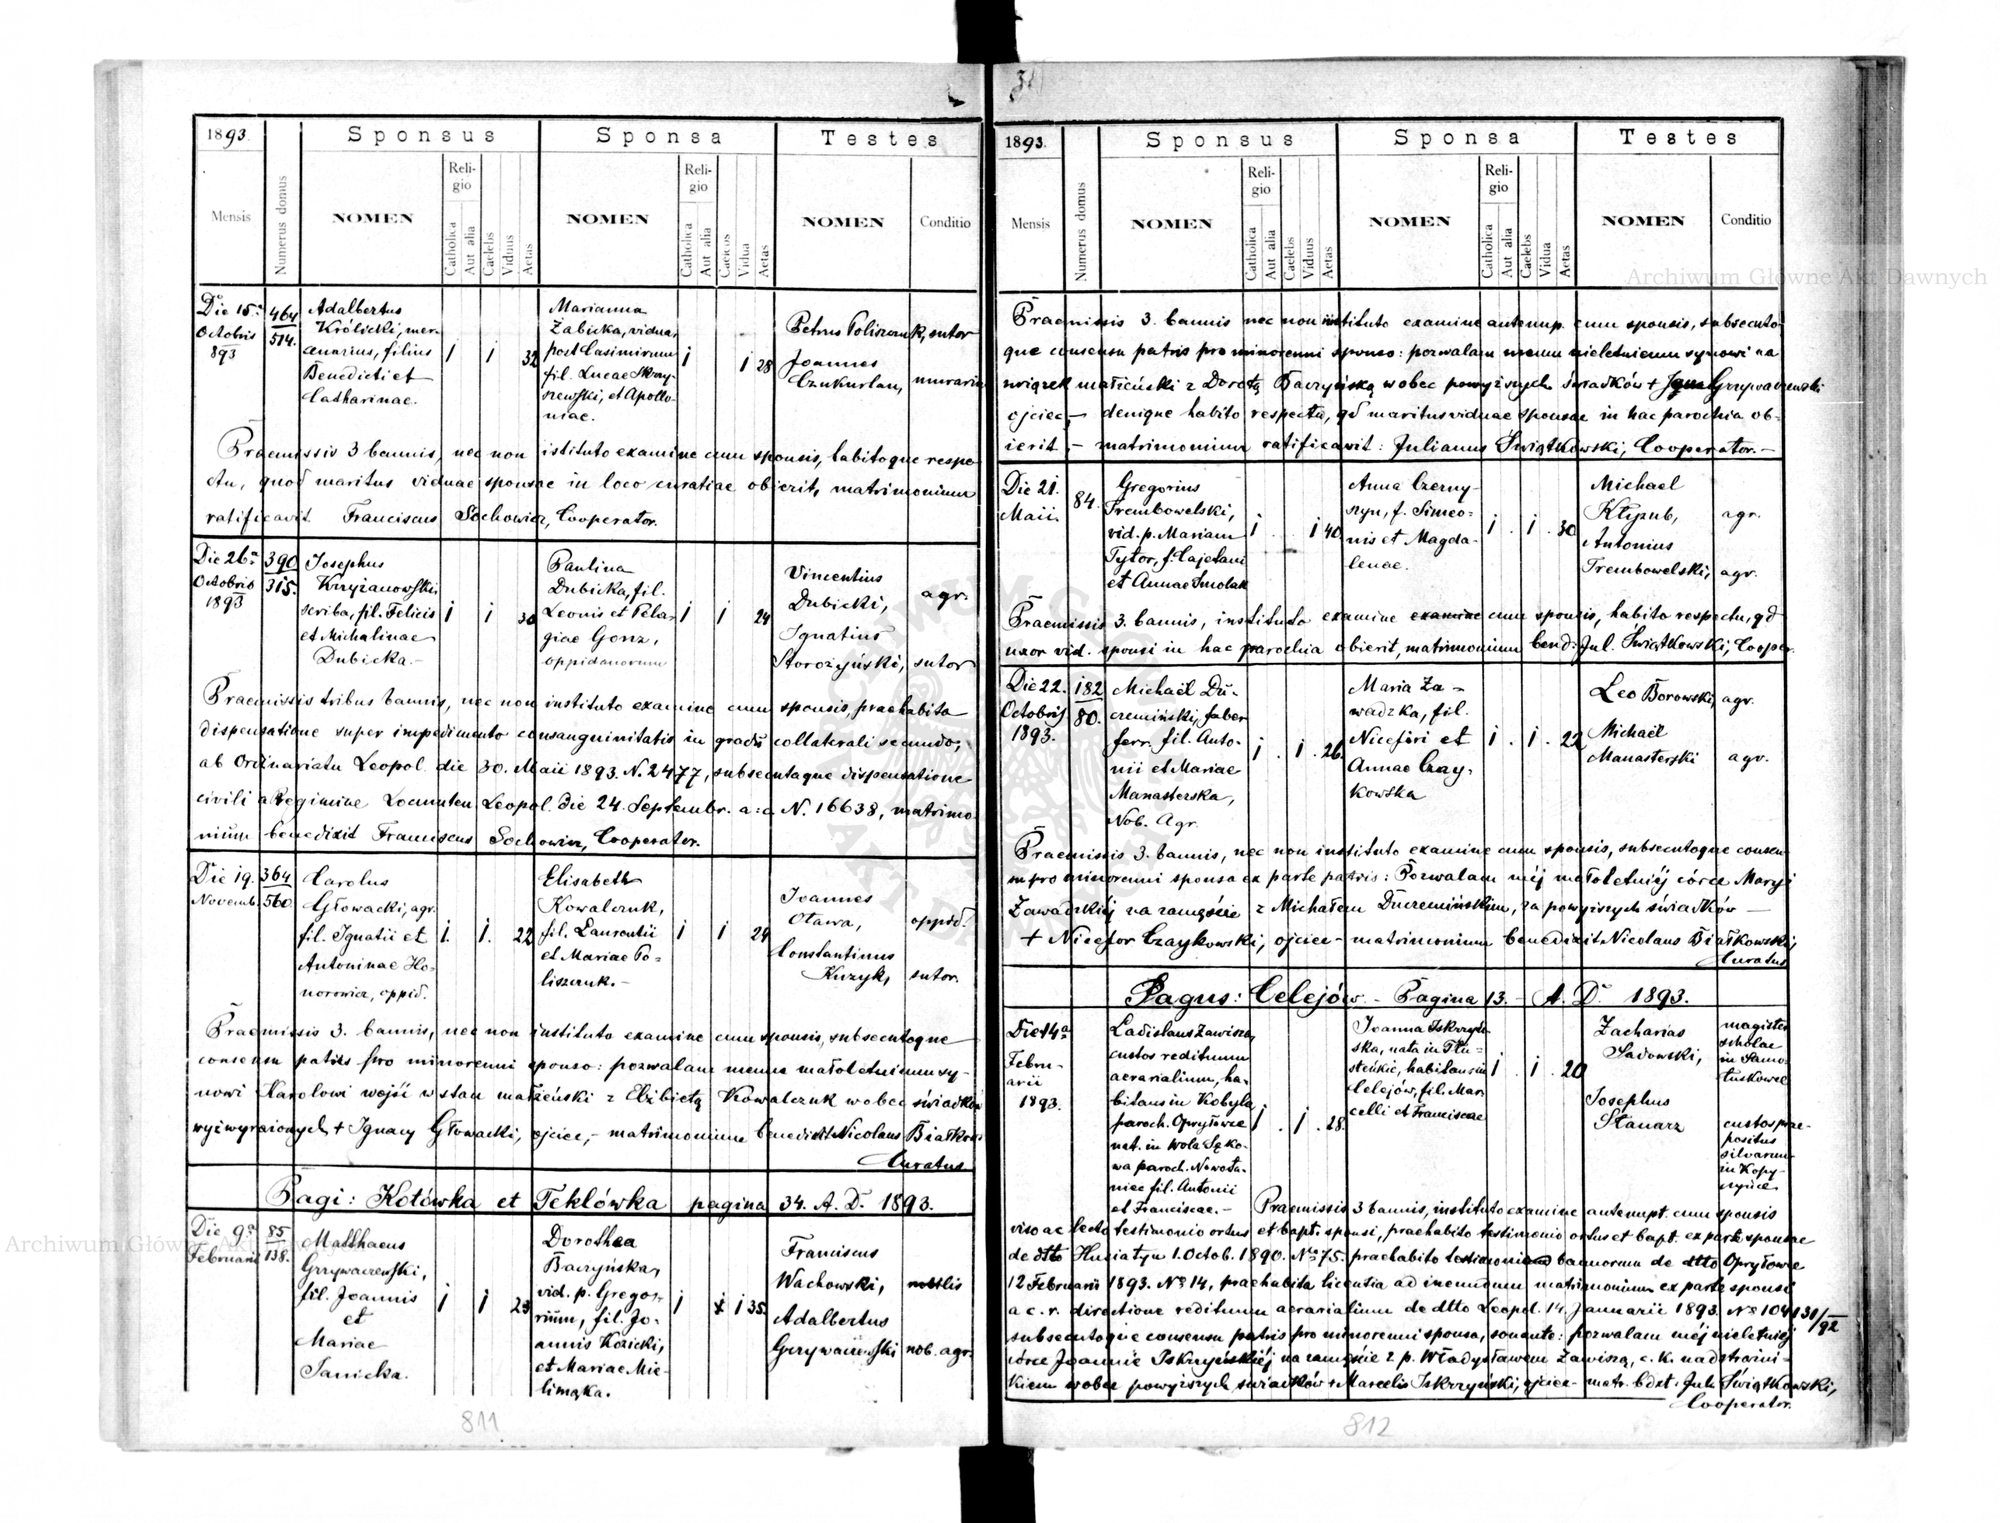 1893.
Sponsus
Sponsa
Testes
Mensis
Numerus domus
NOMEN
Religio
Catholica
Aut alia
Caelebs
Viduus
Aetas
NOMEN
Religio
Catholica
Aut alia
Caelebs
Vidua
Aetas
NOMEN
Conditio
Die 15.
Octobris
893
464
514.
Adalbertus
Królicki, mer-
cenarius, filius
Benedicti et
Catharinae.
1 1 32
Marianna
Żabicka, vidua
post Casimirum
fil. Lucae Skrzy-
szewski, et Apollo-
niae.
1 1 28
Petrus Poliszczuk, sutor
Joannes
murarius
Praemissis 3 bannis, nec non istituto examine cum sponsis, habitoque respe-
ctu, quod maritus viduae sponsae in loco curatiae obierit, matrimonium
ratificavit Franciscus Sochowicz, Cooperator.
Die 26a
Octobris
1893
390
315.
Josephus
Krzyżanowski
scriba, fil. Felicis
et Michalinae
Dubicka.-
1 1 30
Paulina
Dubicka, fil.
Leonis et Pela-
giae Gonz,
oppidanorum
1 1 24
Vincentius
Dubicki, agr.
Ignatius
Storożyński, sutor
Praemissis tribus bannis, nec non instituto examine cum sponsis, praehabita
dispensatione super impedimento consanguinitatis in gradu collaterali secundo,
ab Ordinariatu Leopol. die 30. Maii 1893. N. 2477, subsecutaque dispensatione
civili a Regimine Locumten. Leopol. die 24. Septembr. a: c. N. 16638, matrimo-
nium benedixit Franciscus Sochowicz, Cooperator.
Die 19.
Novemb.
364
560.
Carolus
Głowacki, agr.
fil. Ignatii et
Antoninae Ho-
norowicz, oppid.
1. 1. 22
Elisabeth
Kowalczuk,
fil. Laurentii
et Mariae Po-
liszczuk.-
1 1 24
Joannes
Otawa, oppid.
Constantinus
Kuzyk, sutor.
Praemissis 3. bannis, nec non instituto examine cum sponsis, subsecutoque
consensu patris pro minorenni sponso: pozwalam memu małoletniemu sy-
nowi Karolowi wejść w stan małżeński z Elżbietą Kowalczuk wobec świadków
wyżwyrażonych + Ignacy Głowacki, ojciec,- matrimonium benedixit Nicolaus Białkowski
Curatus
Pagi: Kotówka et Teklówka pagina 34. A. D. 1893.
Die 9a
Februarii
85
138.
Matthaeus
Grzywaczewski,
fil. Joannis
et
Mariae
Janicka.
1 1 23
Dorothea
Baczyńska,
vid. p. Grego-
rium, fil. Jo-
annis Kozicki,
et Mariae Mie-
limąka.
1 1 35.
Franciscus
Wachowski,
Adalbertus
Grzywaczewski nob. agr.
811
1893.
Sponsus
Sponsa
Testes
Mensis
Numerus domus
NOMEN
Religio
Catholica
Aut alia
Caelebs
Viduus
Aetas
NOMEN
Religio
Catholica
Aut alia
Caelebs
Vidua
Aetas
NOMEN
Conditio
Praemissis 3. bannis nec non instituto examine antenup. cum sponsis, subsecuto-
que consensu patris pro minorenni sponso: pozwalam memu nieletniemu synowi na
związek małżeński z Dorotą Baczyńską wobec powyższych świadków + Grzywaczewski
ojciec,- denique habito respectu, qd maritus viduae sponsae in hac parochia ob-
ierit,- matrimonium ratificavit: Julianus Świątkowski, Cooperator.-
Die 21.
Maii.
84.
Gregorius
Trembowelski,
vid. p. Mariam
Tytor, f. Cajetani
et Annae Smolak
1 1 40
Anna Czerny-
szyn, f. Simeo-
nis et Magda-
lenae.
1. 1. 30
Michael
Kłyzub, agr.
Antonius
Trembowelski, agr.
Praemissis 3. bannis, instituto examine examine cum sponsis, habito respectu, qd
uxor vid. sponsi in hac parochia obierit, matrimonium bened: Jul. Świątkowski, Cooper.
Die 22.
Octobris
1893.
182
80.
Michaël Du-
czemiński, faber
ferr. fil. Anto-
nii et Mariae
Manasterska,
Nob. Agr.
1. 1. 26.
Maria Za-
wadzka, fil.
Nicefori et
Annae Czay-
kowska
1. 1. 22
Leo Borowski, agr.
Michaël
Manasterski agr.
Praemissis 3. bannis, nec non instituto examine cum sponsis, subsecutoque consen-
su pro minorenni sponsa ex parte patris: Pozwalam mej małoletniéj córce Maryi
Zawadzkiéj na zamęście z Michałem Duczemińskim, za powyższych świadków -
+ Nicefor Czaykowski, ojciec - matrimonium benedixit Nicolaus Białkowski,
Curatus
Pagus: Celejów.- Pagina 13.- A. D. 1893.
Die 14a
Febru-
arii
1893.
Ladislaus Zawisza,
custos redituum
aerarialium, ha-
bitans in Kobyla
paroch. Opryłowce
nat. in Wola Sęko-
wa paroch. Nowota-
niec fil. Antonii
et Franciscae.-
1. 1. 28.
Joanna Iskrzyń-
ska, nata in Tłu-
steńkie, habitans in
Celejów, fil. Mar-
celli et Franciscae
1. 1. 20
Zacharias
Sadowski,
magister
scholae
in Samo-
łuskowce
Josephus
Stanarz
custos prae-
positus
silvarum
in Kopy-
czyńce
Praemissis 3 bannis, instituto examine antenupt. cum sponsis
viso ac lecto testimonio ortus et bapt. sponsi, praehabito testimonio ortus et bapt. ex parte sponsae
de dtto Husiatyn 1. Octob. 1890. No 75. praehabito testimonio bannorum de dtto Opryłowce
12 Februarii 1893. No 14, praehabita licentia ad ineundum matrimonium ex parte sponsi
a c. r. directione redituum aerarialium de dtto Leopol. 14. Januarii 1893. No 104131/92
subsecutoque consensu patris pro minorenni sponsa, sonante: pozwalam mej nieletniej
córce Joannie Iskrzyńskiéj na zamęście z p. Władysławem Zawiszą, c. k. nadstrażni-
kiem wobec powyższych świadków + Marcelis Iskrzyński, ojciec - matr. bdxt. Jul. Świątkowski,
Cooperator.
812
Archiwum Główne Akt Dawnych
Archiwum Główne Akt Dawnych
ARCHIWUM GŁÓWNE AKT DAWNYCH